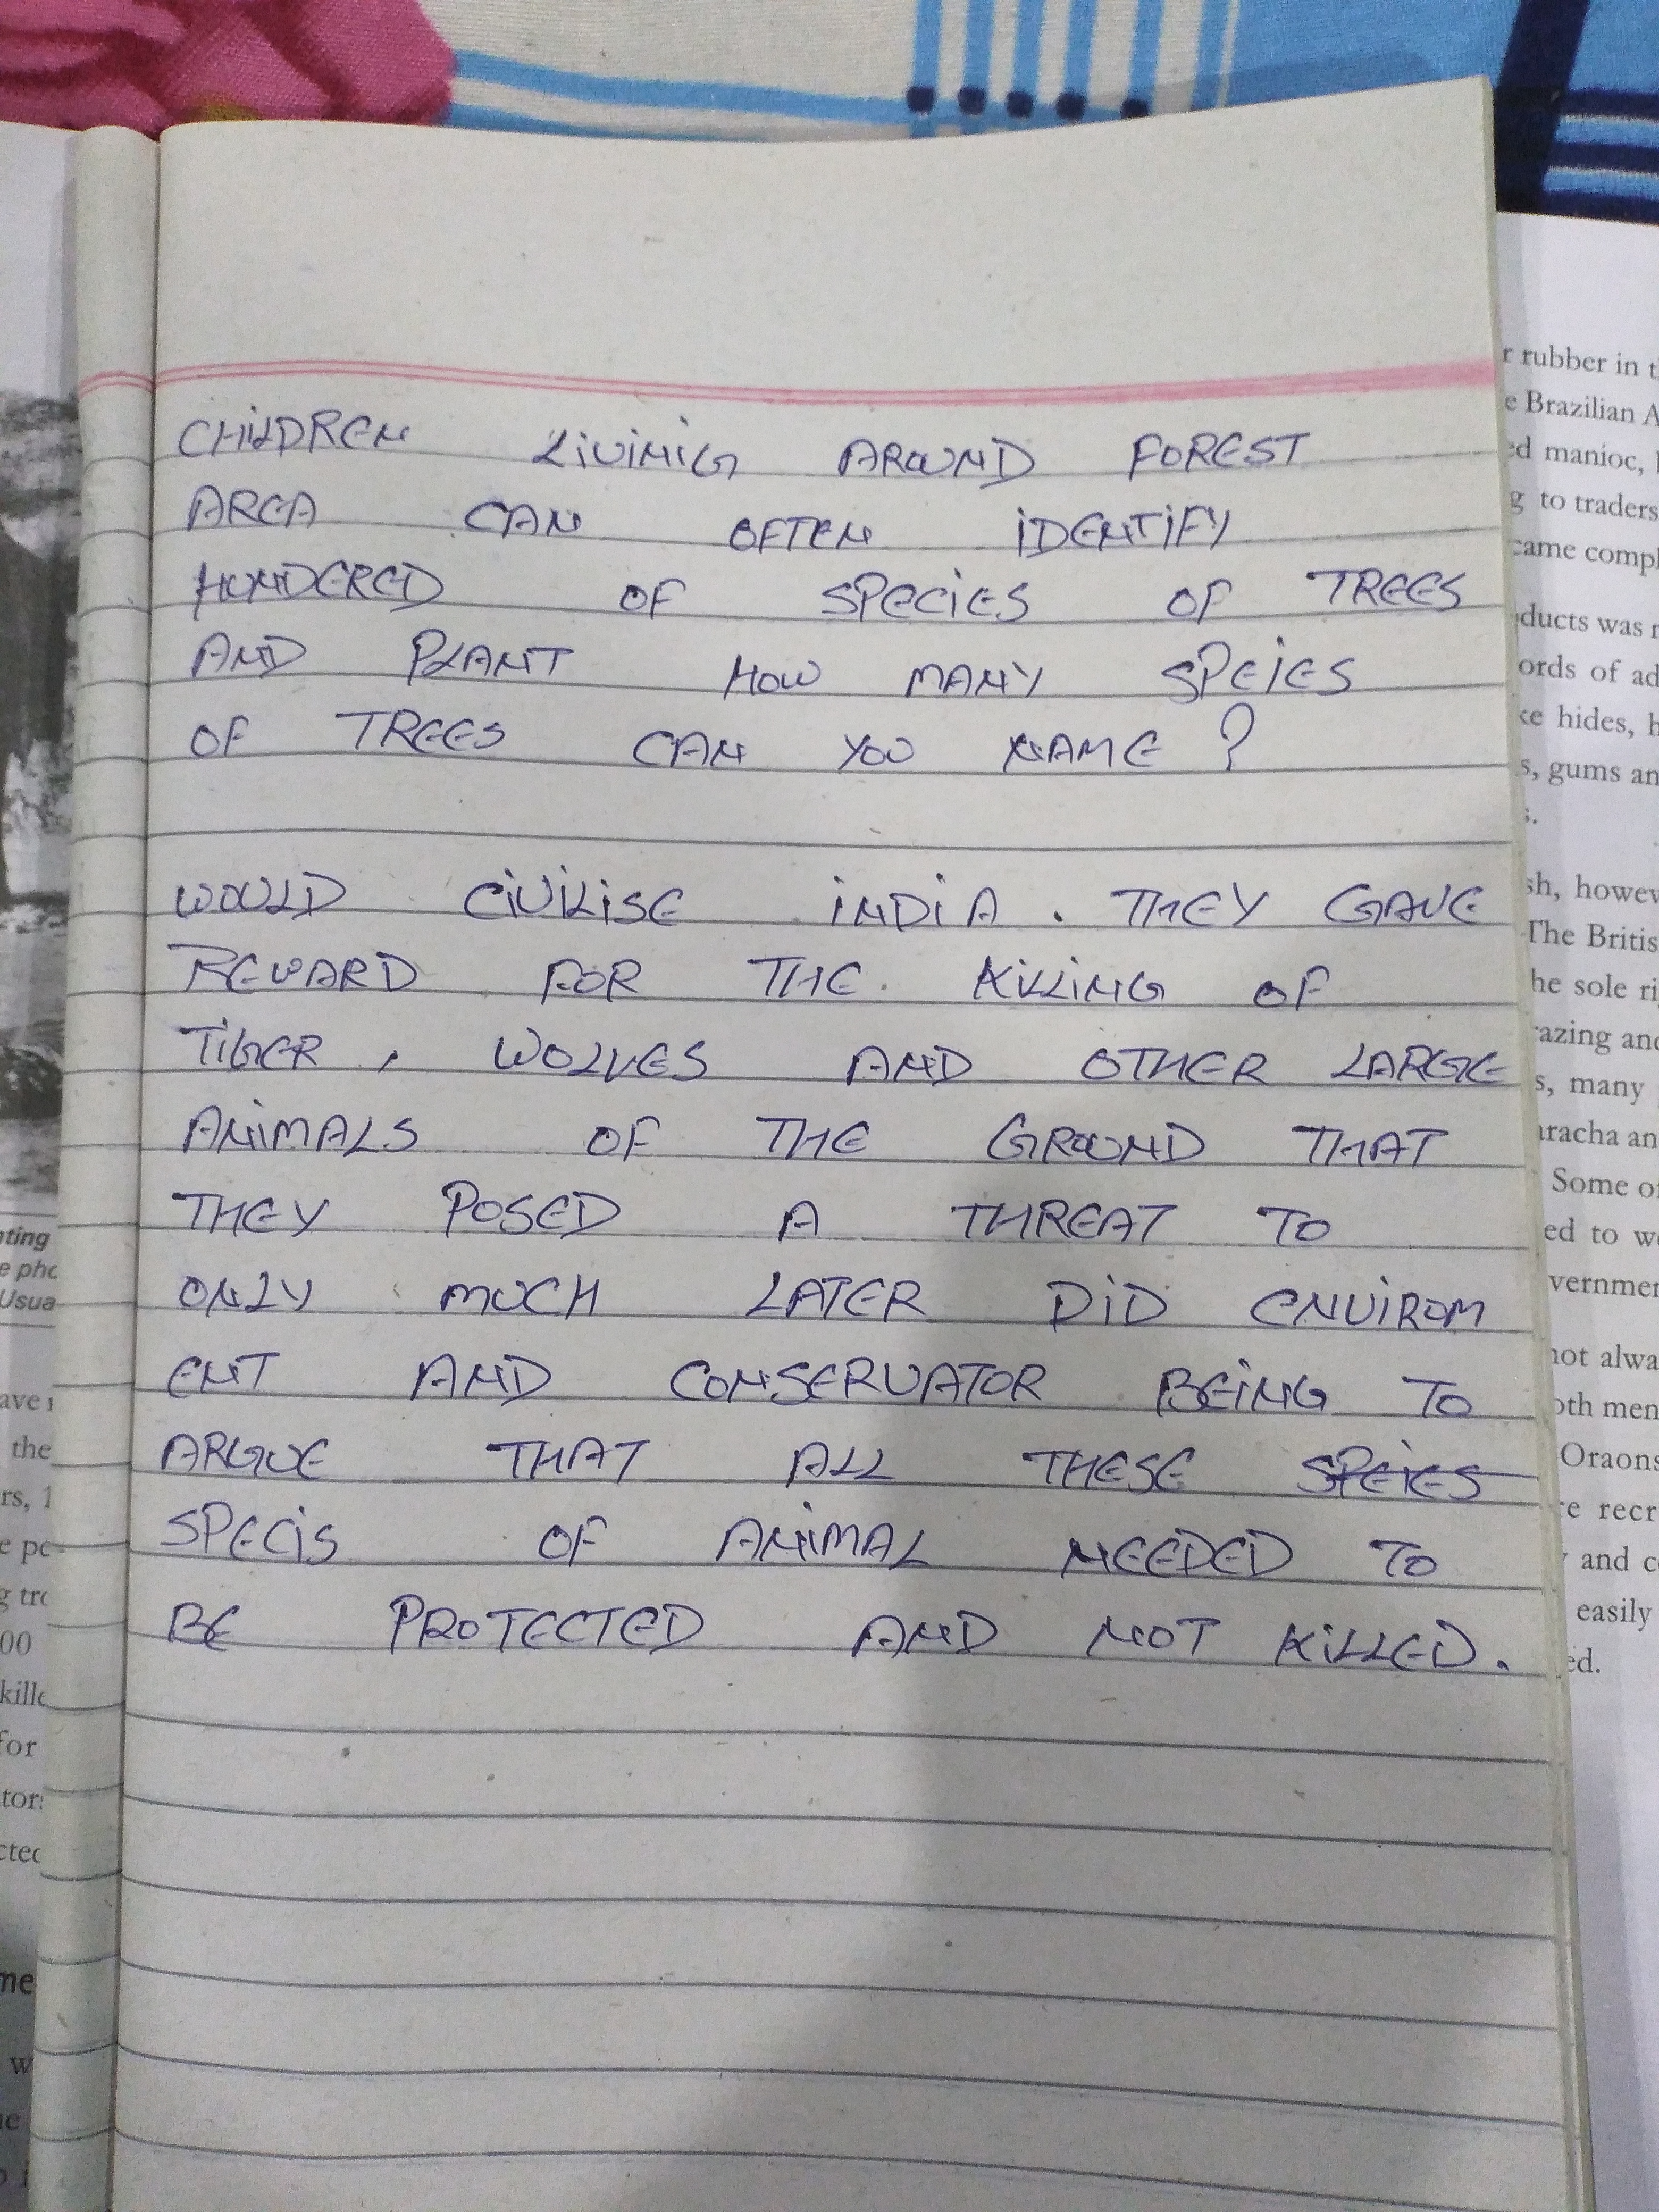 CHILDREN LIVINIG AROUND FOREST
AREA CAN OFTEN IDENTIFY
HUNDERED OF SPECIES OF TREES
AND PLANT HOW MANY SPEIES
OF TREES CAN YOU NAME ?
WOULD CIVILISE INDIA . THEY GAVE
REWARD FOR THE KILLING OF
TIGER , WOLVES AND OTHER LARGE
ANIMALS OF THE GROUND THAT
THEY POSED A THREAT TO
ONLY MUCH LATER DID ENVIROM
ENT AND CONSERVATOR BEING TO
ARGUE THAT ALL THESE SPEIES
SPECIS OF ANIMAL NEEDED TO
BE PROTECTED AND NOT KILLED.
r rubber in t
e Brazilian A
ed manioc,
g to traders
came compl
ducts was
ords of ad
ke hides, h
s, gums an
s.
sh, howev
The Britis
he sole ri
razing and
s, many
aracha an
Some of
ed to we
vernmen
not alwa
oth men
Oraons
re recr
and co
easily
ed.
nting
e pho
Usua
ave
the
rs, 1
e po
g tro
00
kille
for
tors
cted
me
w